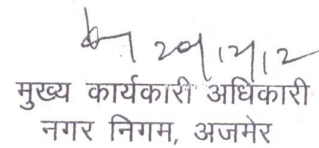 20/12/12
मुख्य कार्यकारी अधिकारी
नगर निगम, अजमेर